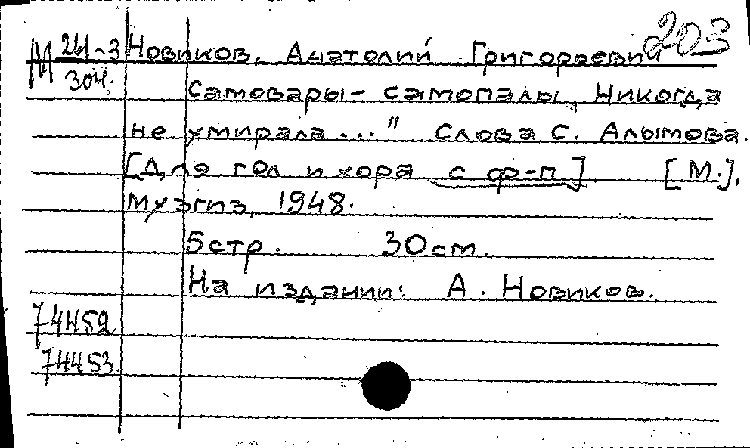 203
М 24-3 Новиков, Анатолий Григорьевич
304. Самовары-самопалы „Никогда
не умирала..." Слова С. Алымова.
[Для гол и хора с ф-п]. [М.],
Музгиз, 1948.
5 стр. 30 см.
На издании: А. Новиков.
74452
74453